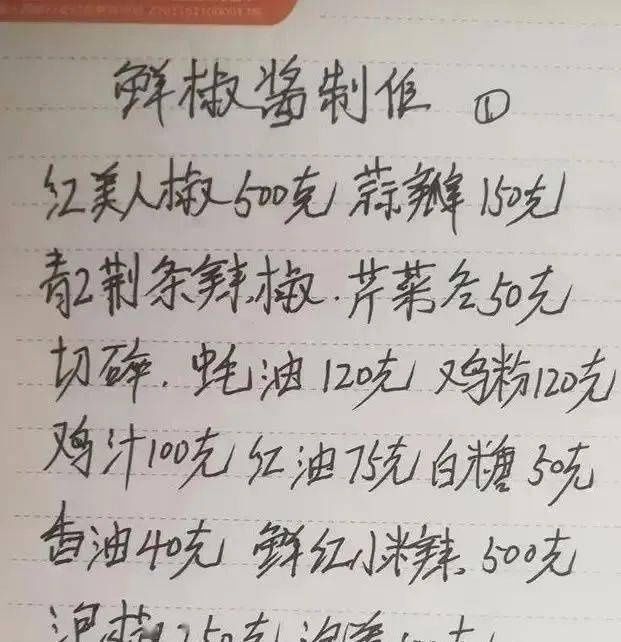 鲜椒酱制作 ①
红美人椒500克 蒜瓣150克
青2荆条辣椒.芹菜各50克
切碎.蚝油120克 鸡粉120克
鸡汁100克 红油75克 白糖50克
香油40克 鲜红小米辣.500克